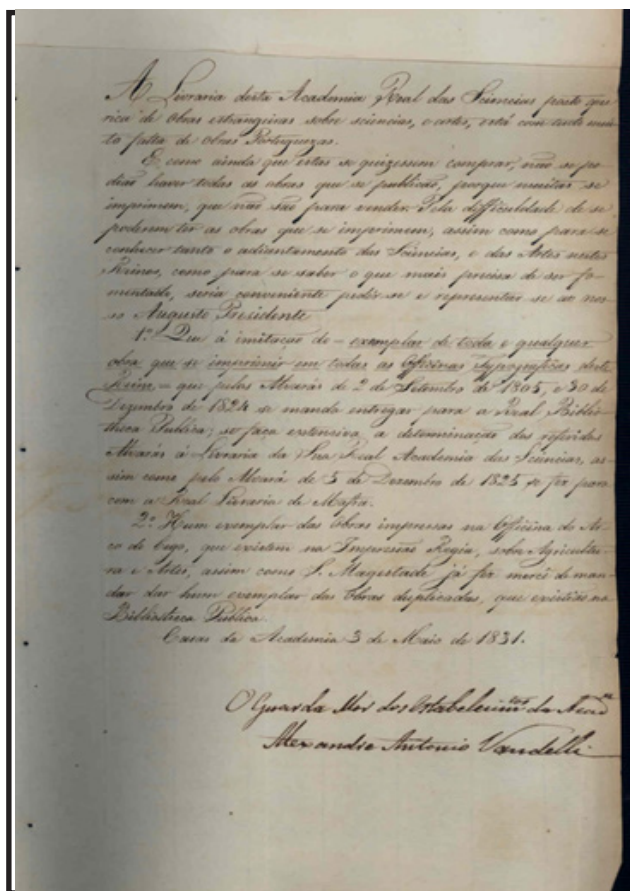 A Livraria desta Academia Real das Sciencias posto que
rica de Obras estrangeiras sobre sciencias, e artes, está com tudo mui-
to falta de Obras Portuguezas.
E como ainda que estas se quizessem comprar, não se po-
dião haver todas as obras que se publicão, porque muitas se
imprimem, que não são para vender: Pela difficuldade de se
poderem ter as obras que se imprimem, assim como para se
conhecer tanto o adiantamento das Sciencias, e das Artes nestes
Reinos, como para se saber o que mais precisa de ser fo-
mentado, seria conveniente pedir-se e representar-se ao nos-
so Augusto Presidente
1.º Que á imitação do = exemplar de toda e qualquer
obra que se imprimir em todas as Officinas Typograficas deste
Reino = que pelos Alvarás de 2 de Setembro de 1805, e 30 de
Dezembro de 1824 se manda entregar para a Real Biblio-
theca Publica; se faça extensiva a determinação dos referidos
Alvarás á Livraria da Sua Real Academia das Sciencias, as-
sim como pelo Alvará de 5 de Dezembro de 1825 se fez para
com a Real Livraria de Mafra.
2.º Hum exemplar das Obras impressas na Officina do Ar-
co do Cego, que existem na Impressão Regia, sobre Agricultu-
ra e Artes, assim como S. Magestade já fez mercê de man-
dar dar hum exemplar das Obras duplicadas, que existião na
Bibliotheca Publica.
Casas da Academia 3 de Maio de 1831.
O Guarda Mor dos Estabelecim.tos da Acad.ª
Alexandre Antonio Vandelli